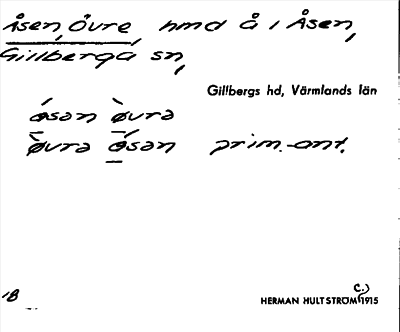 Åsen, Övre, hmd å i Åsen,
Gillberga sn,
Gillbergs hd, Värmlands län
ó̱sən ø̀vrə
ø̱̀vrə ó̱sən prim.-ant.
18
HERMAN HULTSTRÖM (C.) 1915